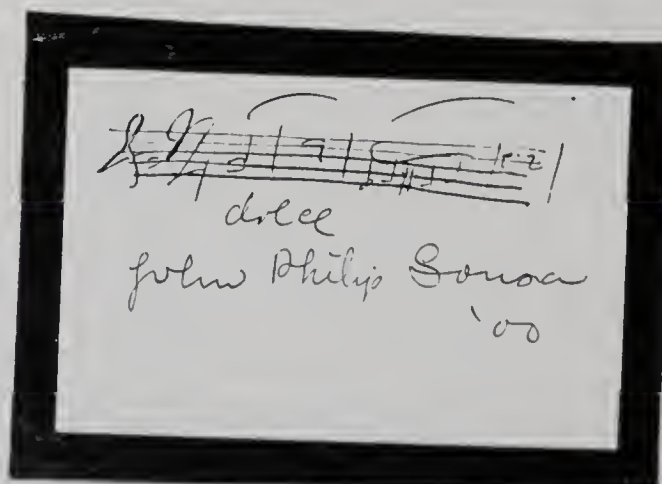 dolce
John Philip Sousa
'00